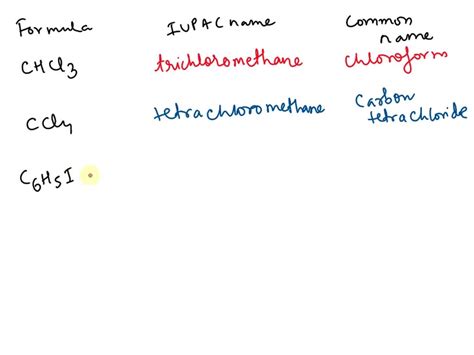 Formula IUPAC name Common name
CHCl3 trichloromethane chloroform
CCl4 tetrachloromethane Carbon tetrachloride
C6H5I